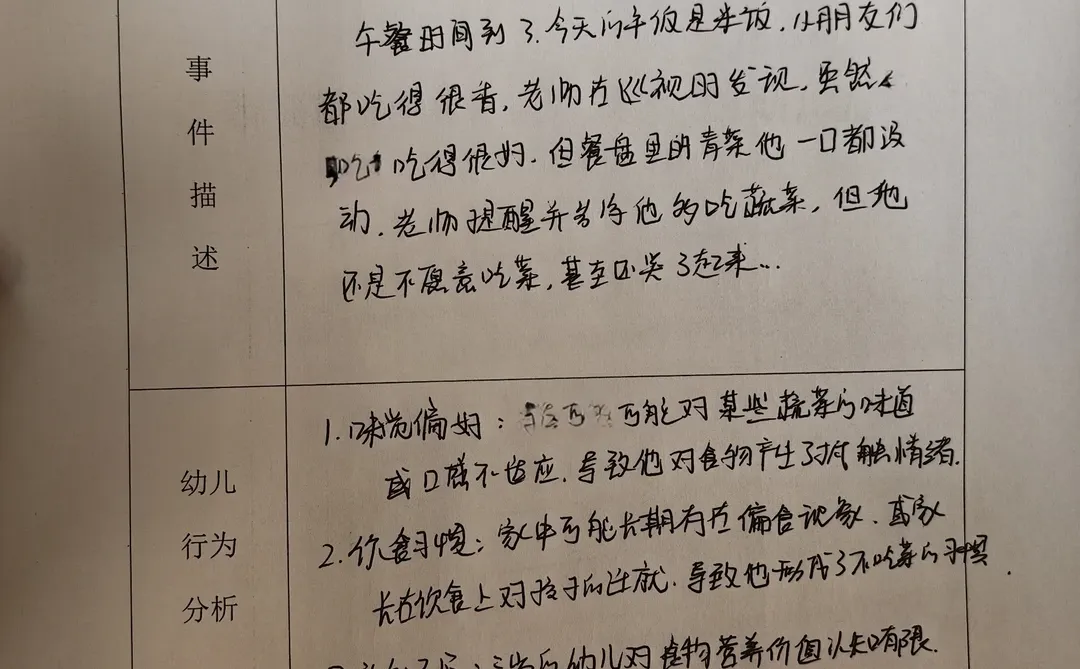 事件描述
午餐时间到了.今天的午饭是米饭,小朋友们
都吃得很香,老师在巡视时发现,虽然
吃得很好.但餐盘里的青菜他一口都没
动.老师提醒并劝导他多吃蔬菜,但他
还是不愿意吃菜,甚至还哭了起来...
幼儿
行为
分析
1.味觉偏好:可能对某些蔬菜的味道
或口感不适应.导致他对食物产生了抵触情绪.
2.饮食习惯:家中可能长期存在偏食现象.或家
长在饮食上对孩子的迁就.导致他形成了不吃菜的习惯.
幼儿对食物营养价值认知有限.